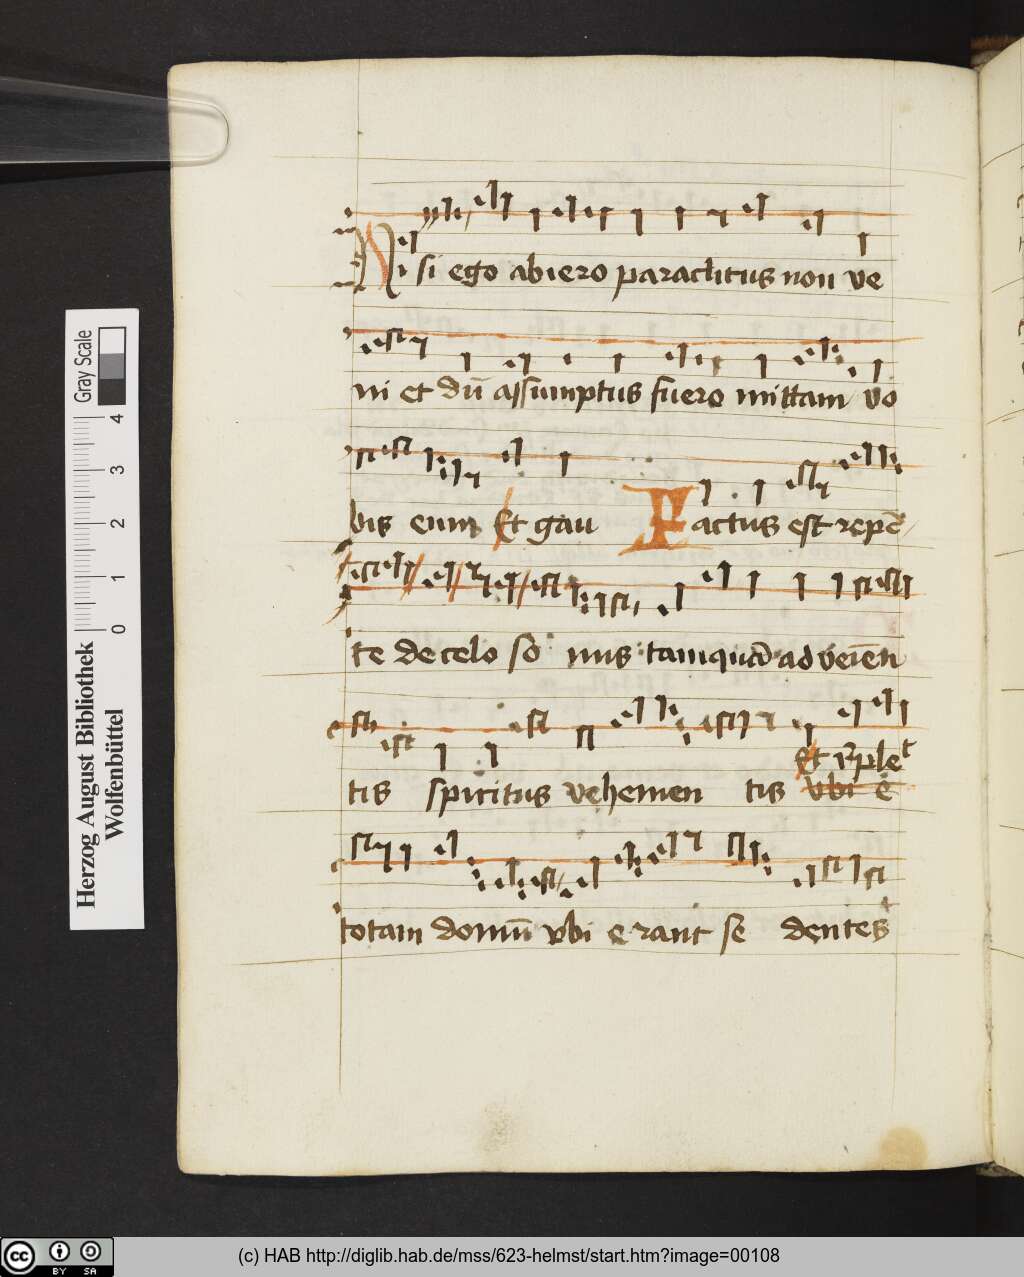 Nisi ego abiero paraclitus non ve
ni et dū assumptus fuero mittam vo
bis eum Et gau Factus est repē
te de celo so nus tamquā advēiēn
tis spiritus vehemen tis vbi e
Et rͤpleͭ
totam domū vbi erant se dentes
Gray Scale
4
3
2
1
0
Herzog August Bibliothek
Wolfenbüttel
cc BY SA
(c) HAB http://diglib.hab.de/mss/623-helmst/start.htm?image=00108